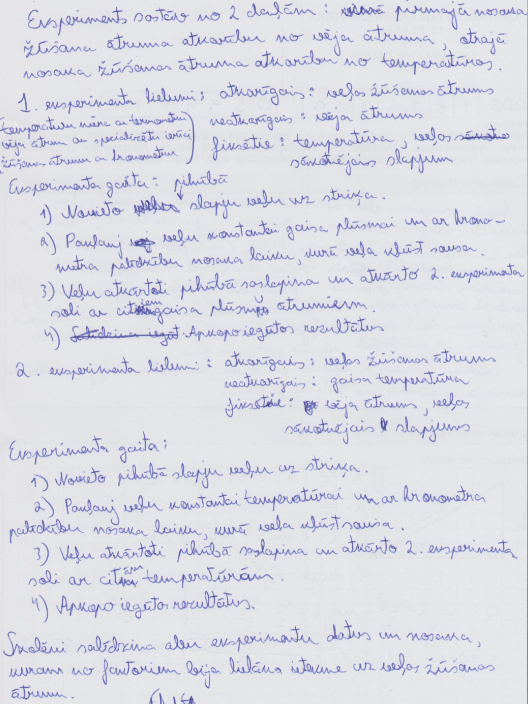 Eksperiments sastāv no 2 daļām: pirmajā nosaka
žūšanas ātruma atkarību no vēja ātruma, otrajā
nosaka žūšanas ātruma atkarību no temperatūras.
1. eksperimenta lielumi: atkarīgais: veļas žūšanas ātrums
neatkarīgais: vēja ātrums
fiksētie: temperatūra, veļas
sākotnējais slapjum
(temperatūru mēra ar termometru
vēja ātrumu ar specializētu ierīci
žūšanas ātrumu ar hronometru)
Eksperimenta gaita:
1) Novieto pilnībā slapju veļu uz striķa.
2) Pakļauj veļu konstantai gaisa plūsmai un ar hrono-
metra palīdzību nosaka laiku, kurā veļa kļūst sausa.
3) Veļu atkārtoti pilnībā saslapina un atkārto 2. eksperimenta
soli ar citiem gaisa plūsmu ātrumiem.
4) Apkopo iegūtos rezultātus
2. eksperimenta lielumi: atkarīgais: veļas žūšanas ātrums
neatkarīgais: gaisa temperatūra
fiksētie: vēja ātrums, veļas
sākotnējais slapjums
Eksperimenta gaita:
1) Novieto pilnībā slapju veļu uz striķa.
2) Pakļauj veļu konstantai temperatūrai un ar hronometra
palīdzību nosaka laiku, kurā veļa kļūst sausa.
3) Veļu atkārtoti pilnībā saslapina un atkārto 2. eksperimenta
soli ar citām temperatūrām.
4) Apkopo iegūtos rezultātus.
Skolēni salīdzina abu eksperimentu datus un nosaka,
kuram no faktoriem bija lielāka ietekme uz veļas žūšanas
ātrumu.